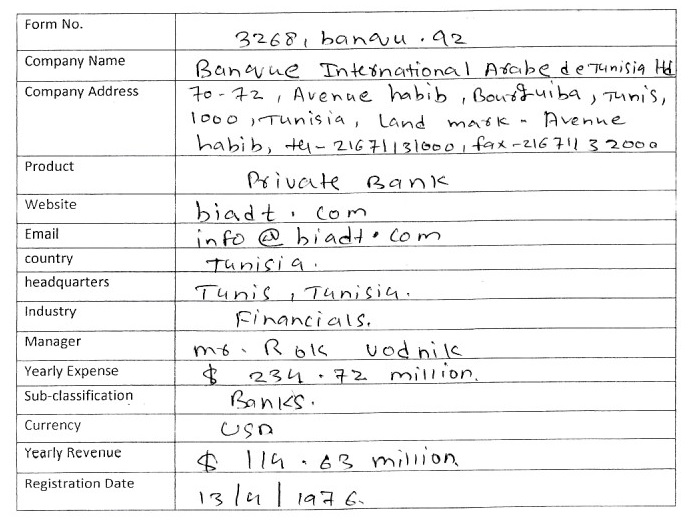 Form No. 3268, banqu . 92
Company Name Banque International Arabe de Tunisia ltd
Company Address 70-72, Avenue habib, Bourguiba, Tunis,
1000, Tunisia, Land mark - Avenue
habib, tel-21671131000, fax-21671132000
Product Private Bank
Website biadt . com
Email info @ biadt . com
country Tunisia.
headquarters Tunis, Tunisia.
Industry Financials.
Manager mr. Rok vodnik
Yearly Expense $ 234.72 million.
Sub-classification Banks.
Currency USD
Yearly Revenue $ 114.63 million
Registration Date 13/4/1976.